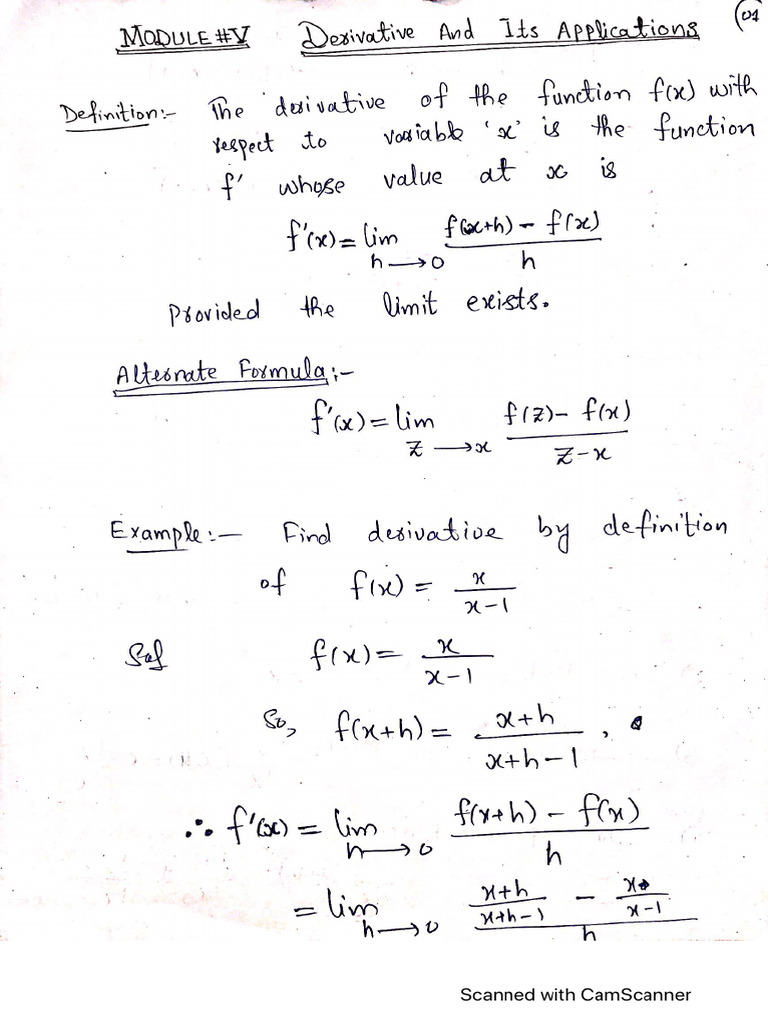 MODULE #V Derivative And Its Applications 01
Definition:- The derivative of the function f(x) with
respect to variable 'x' is the function
f' whose value at x is
f'(x) = lim h→0 f(x+h) - f(x) / h
Provided the limit exists.
Alternate Formula:-
f'(x) = lim z→x f(z) - f(x) / z-x
Example:- Find derivative by definition
of f(x) = x / x-1
Sol f(x) = x / x-1
So, f(x+h) = x+h / x+h-1 ,
∴ f'(x) = lim h→0 f(x+h) - f(x) / h
= lim h→0 x+h / x+h-1 - x / x-1 / h
Scanned with CamScanner